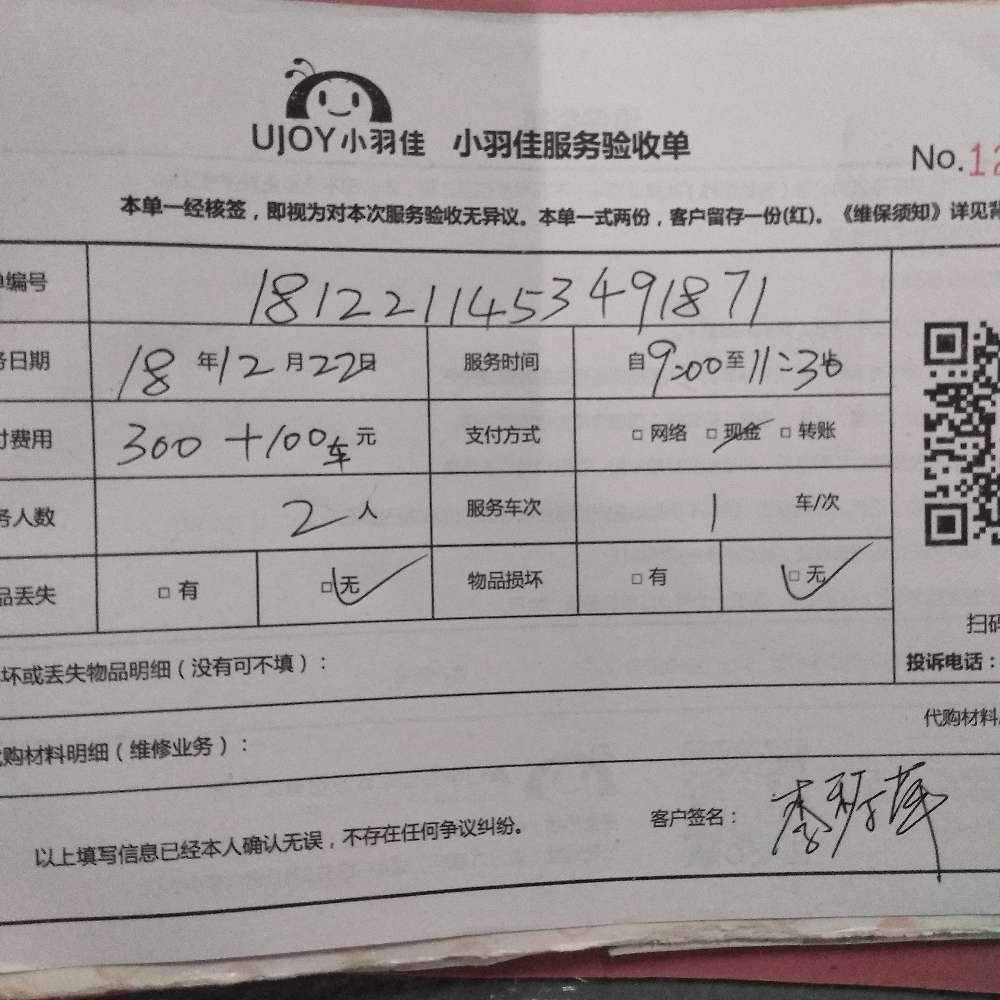 UJOY小羽佳 小羽佳服务验收单
No.12
本单一经核签，即视为对本次服务验收无异议。本单一式两份，客户留存一份(红)。《维保须知》详见背
单编号 1812211453491871
务日期 18年12月22日 服务时间 自9:00至11:36
付费用 300+100车元 支付方式 □网络 □现金 □转账
务人数 2人 服务车次 1 车/次
品丢失 □有 □无 物品损坏 □有 □无
扫码
坏或丢失物品明细（没有可不填）： 投诉电话：
购材料明细（维修业务）： 代购材料
以上填写信息已经本人确认无误，不存在任何争议纠纷。 客户签名：